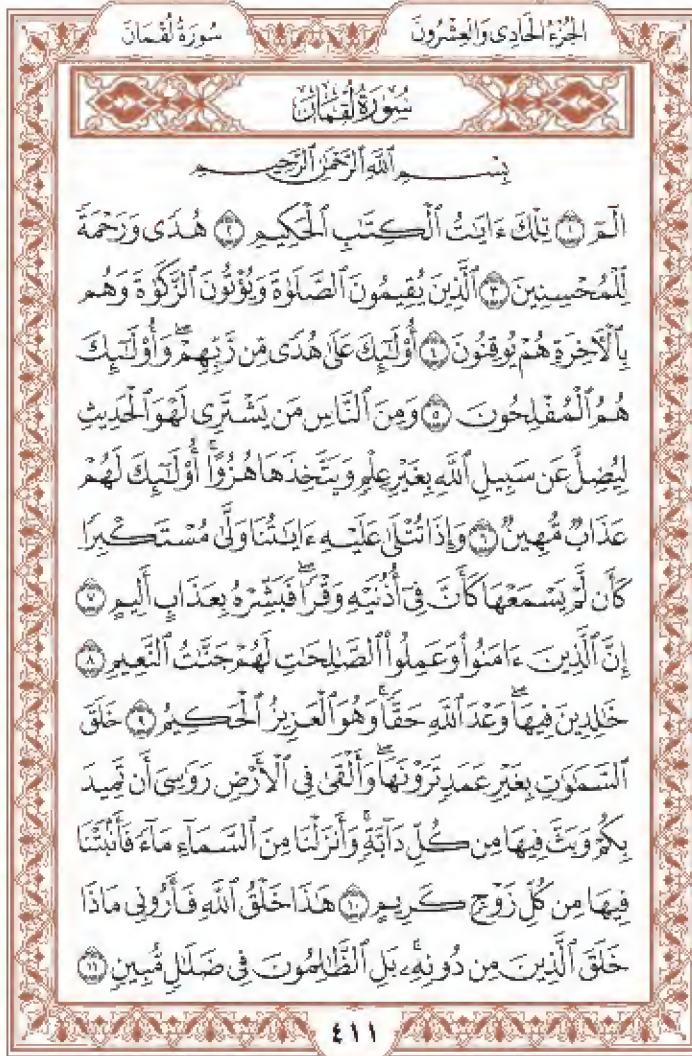 الجُزْءُ الحَادِى وَالعِشْرُونَ
سُورَةُ لُقْمَانَ
سُورَةُ لُقْمَانَ
بِسْمِ ٱللَّهِ ٱلرَّحْمَٰنِ ٱلرَّحِيمِ
الٓمٓ ١ تِلْكَ ءَايَٰتُ ٱلْكِتَٰبِ ٱلْحَكِيمِ ٢ هُدًى وَرَحْمَةً
لِّلْمُحْسِنِينَ ٣ ٱلَّذِينَ يُقِيمُونَ ٱلصَّلَوٰةَ وَيُؤْتُونَ ٱلزَّكَوٰةَ وَهُم
بِٱلْأٓخِرَةِ هُمْ يُوقِنُونَ ٤ أُو۟لَٰٓئِكَ عَلَىٰ هُدًى مِّن رَّبِّهِمْ ۖ وَأُو۟لَٰٓئِكَ
هُمُ ٱلْمُفْلِحُونَ ٥ وَمِنَ ٱلنَّاسِ مَن يَشْتَرِى لَهْوَ ٱلْحَدِيثِ
لِيُضِلَّ عَن سَبِيلِ ٱللَّهِ بِغَيْرِ عِلْمٍ وَيَتَّخِذَهَا هُزُوًا ۚ أُو۟لَٰٓئِكَ لَهُمْ
عَذَابٌ مُّهِينٌ ٦ وَإِذَا تُتْلَىٰ عَلَيْهِ ءَايَٰتُنَا وَلَّىٰ مُسْتَكْبِرًا
كَأَن لَّمْ يَسْمَعْهَا كَأَنَّ فِىٓ أُذُنَيْهِ وَقْرًا ۖ فَبَشِّرْهُ بِعَذَابٍ أَلِيمٍ ٧
إِنَّ ٱلَّذِينَ ءَامَنُوا۟ وَعَمِلُوا۟ ٱلصَّٰلِحَٰتِ لَهُمْ جَنَّٰتُ ٱلنَّعِيمِ ٨
خَٰلِدِينَ فِيهَا ۖ وَعْدَ ٱللَّهِ حَقًّا ۚ وَهُوَ ٱلْعَزِيزُ ٱلْحَكِيمُ ٩ خَلَقَ
ٱلسَّمَٰوَٰتِ بِغَيْرِ عَمَدٍ تَرَوْنَهَا ۖ وَأَلْقَىٰ فِى ٱلْأَرْضِ رَوَٰسِىَ أَن تَمِيدَ
بِكُمْ وَبَثَّ فِيهَا مِن كُلِّ دَآبَّةٍ ۚ وَأَنزَلْنَا مِنَ ٱلسَّمَآءِ مَآءً فَأَنۢبَتْنَا
فِيهَا مِن كُلِّ زَوْجٍ كَرِيمٍ ١٠ هَٰذَا خَلْقُ ٱللَّهِ فَأَرُونِى مَاذَا
خَلَقَ ٱلَّذِينَ مِن دُونِهِۦ ۚ بَلِ ٱلظَّٰلِمُونَ فِى ضَلَٰلٍ مُّبِينٍ ١١
٤١١